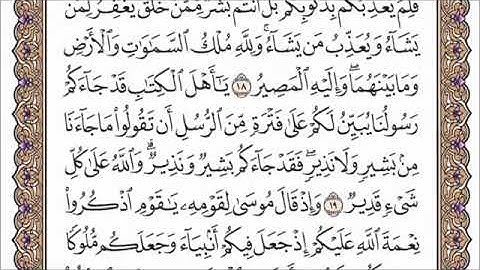 فَلِمَ يُعَذِّبُكُم بِذُنُوبِكُم بَلْ أَنتُم بَشَرٌ مِّمَّنْ خَلَقَ يَغْفِرُ لِمَن
يَشَآءُ وَيُعَذِّبُ مَن يَشَآءُ وَلِلَّهِ مُلْكُ ٱلسَّمَٰوَٰتِ وَٱلْأَرْضِ
وَمَا بَيْنَهُمَا وَإِلَيْهِ ٱلْمَصِيرُ ١٨ يَٰٓأَهْلَ ٱلْكِتَٰبِ قَدْ جَآءَكُمْ
رَسُولُنَا يُبَيِّنُ لَكُمْ عَلَىٰ فَتْرَةٍ مِّنَ ٱلرُّسُلِ أَن تَقُولُوا۟ مَا جَآءَنَا
مِنۢ بَشِيرٍ وَلَا نَذِيرٍ فَقَدْ جَآءَكُم بَشِيرٌ وَنَذِيرٌ وَٱللَّهُ عَلَىٰ كُلِّ
شَىْءٍ قَدِيرٌ ١٩ وَإِذْ قَالَ مُوسَىٰ لِقَوْمِهِۦ يَٰقَوْمِ ٱذْكُرُوا۟
نِعْمَةَ ٱللَّهِ عَلَيْكُمْ إِذْ جَعَلَ فِيكُمْ أَنۢبِيَآءَ وَجَعَلَكُم مُّلُوكًا